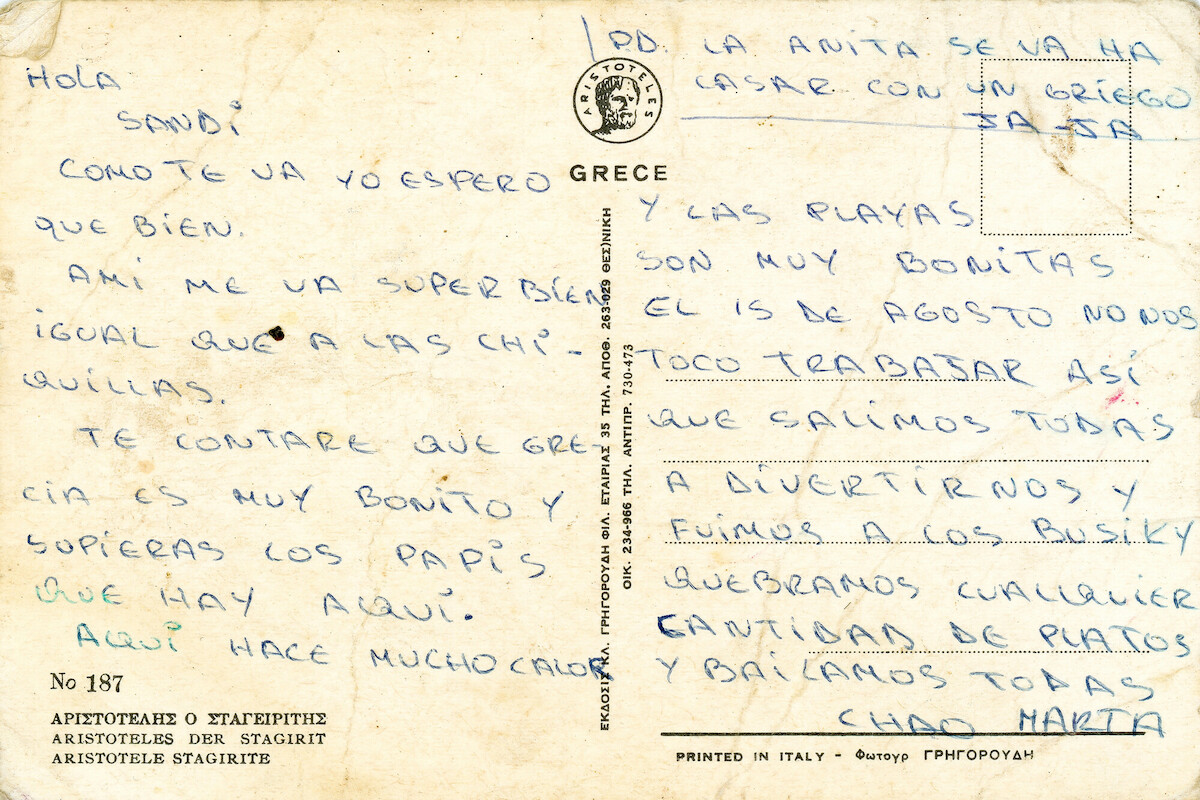 HOLA
SANDI
COMO TE VA YO ESPERO
QUE BIEN.
AMI ME VA SUPER BIEN
IGUAL QUE A LAS CHI-
QUILLAS.
TE CONTARE QUE GRE-
CIA ES MUY BONITO Y
SUPIERAS LOS PAPIS
QUE HAY AQUI.
AQUI HACE MUCHO CALOR
No 187
ΑΡΙΣΤΟΤΕΛΗΣ Ο ΣΤΑΓΕΙΡΙΤΗΣ
ARISTOTELES DER STAGIRIT
ARISTOTELE STAGIRITE
ARISTOTELES
GRECE
ΕΚΔΟΣΙΣ ΚΛ. ΓΡΗΓΟΡΟΥΔΗ ΦΙΛ. ΕΤΑΙΡΙΑΣ 35 ΤΗΛ. ΑΠΟΘ. 263-029 ΘΕΣ)ΝΙΚΗ
ΟΙΚ. 234-966 ΤΗΛ. ΑΝΤΙΠΡ. 730-473
PD. LA ANITA SE VA HA
CASAR CON UN GRIEGO
JA-JA
Y LAS PLAYAS
SON MUY BONITAS
EL 15 DE AGOSTO NO NOS
TOCO TRABAJAR ASI
QUE SALIMOS TODAS
A DIVERTIRNOS Y
FUIMOS A LOS BUSIKY
QUEBRAMOS CUALQUIER
CANTIDAD DE PLATOS
Y BAILAMOS TODAS
CHAO MARTA
PRINTED IN ITALY - Φωτογρ ΓΡΗΓΟΡΟΥΔΗ